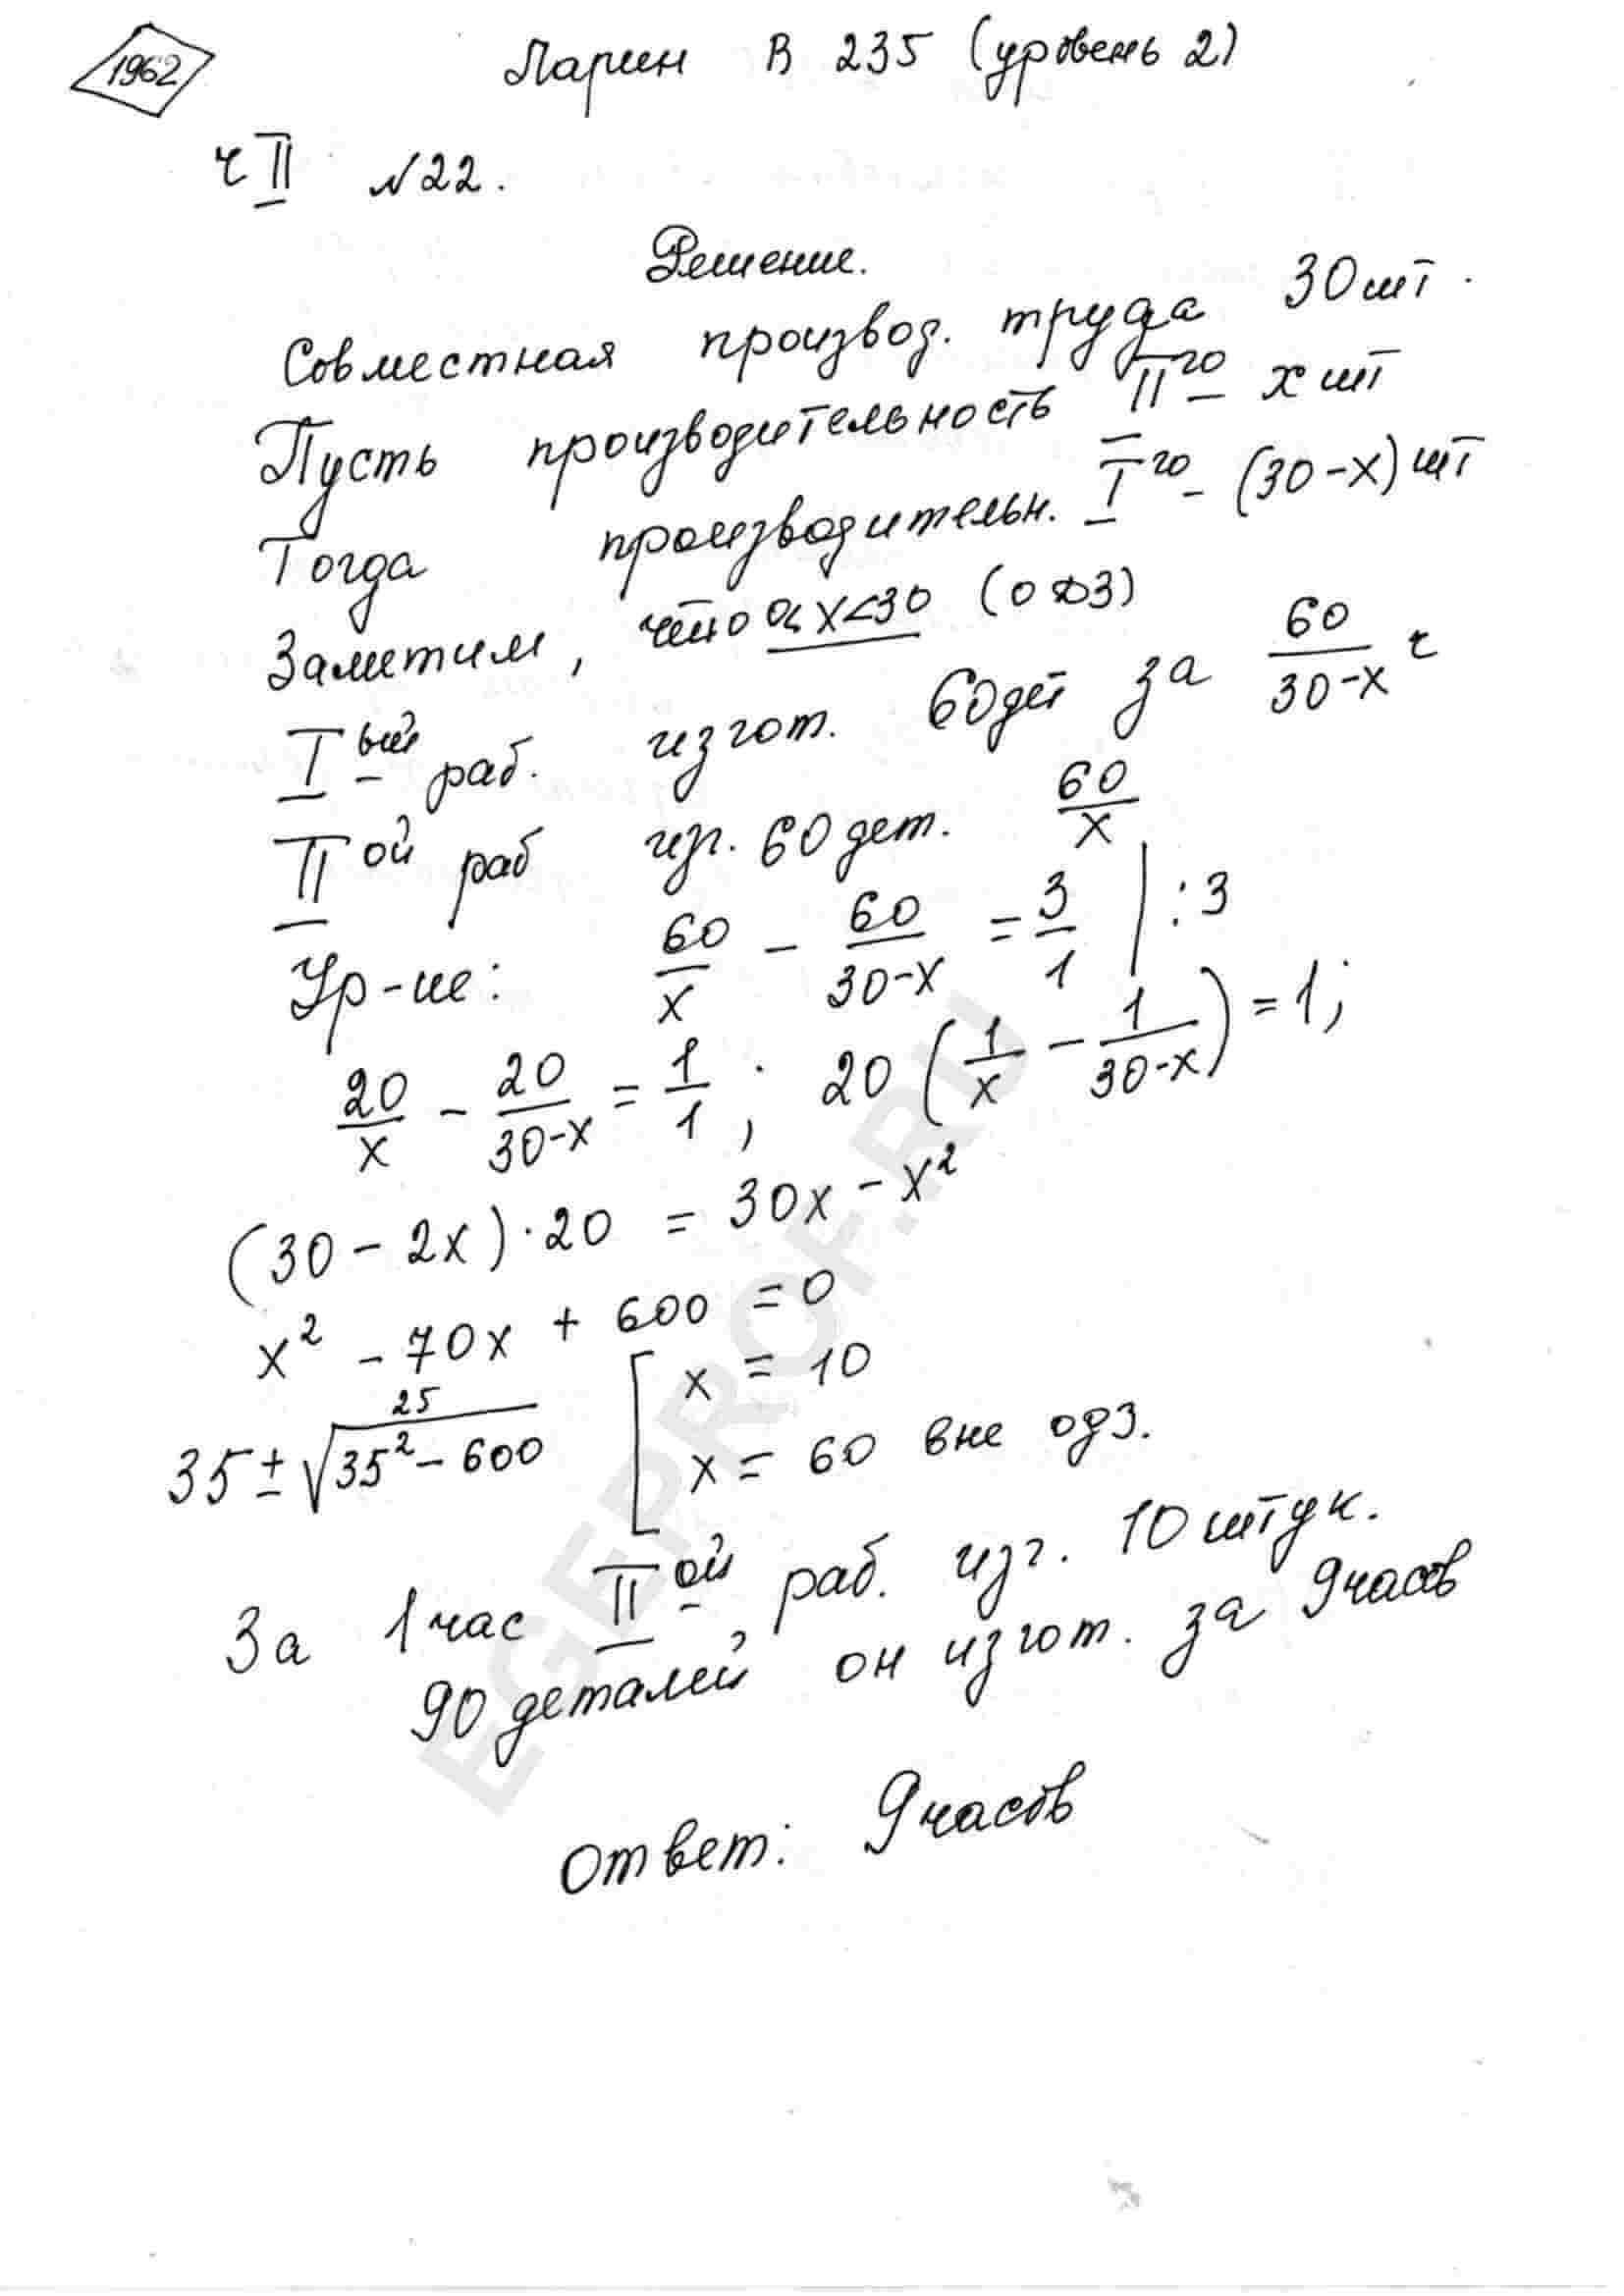 1962
Ларин В 235 (уровень 2)
ч II №22.
Решение.
Совместная производ. труда 30 шт.
Пусть производительность II го - x шт
Тогда производительн. I го - (30-x) шт
Заметим, что 0<x<30 (ОДЗ)
I ый раб. изгот. 60 дет за 60/(30-x) ч
II ой раб изг. 60 дет. 60/x
Ур-ие: 60/x - 60/(30-x) = 3/1 | :3
20/x - 20/(30-x) = 1/1 ; 20(1/x - 1/(30-x)) = 1;
(30-2x)·20 = 30x - x²
x² - 70x + 600 = 0
35 ± √(35² - 600) 25 [ x = 10
x = 60 вне одз.
За 1 час II ой раб. изг. 10 штук.
90 деталей он изгот. за 9 часов
Ответ: 9 часов
EGEPROF.RU